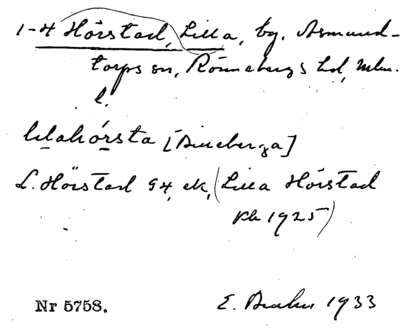 1-4 Hörstad, Lilla, by, Asmund-
torps sn, Rönnebergs hd, Mlm.
l.
lılahó̱rsta [Anneberga]
L. Hörstad G4, ek, (Lilla Hörstad
Kb 1925)
Nr 5758. E. 1933